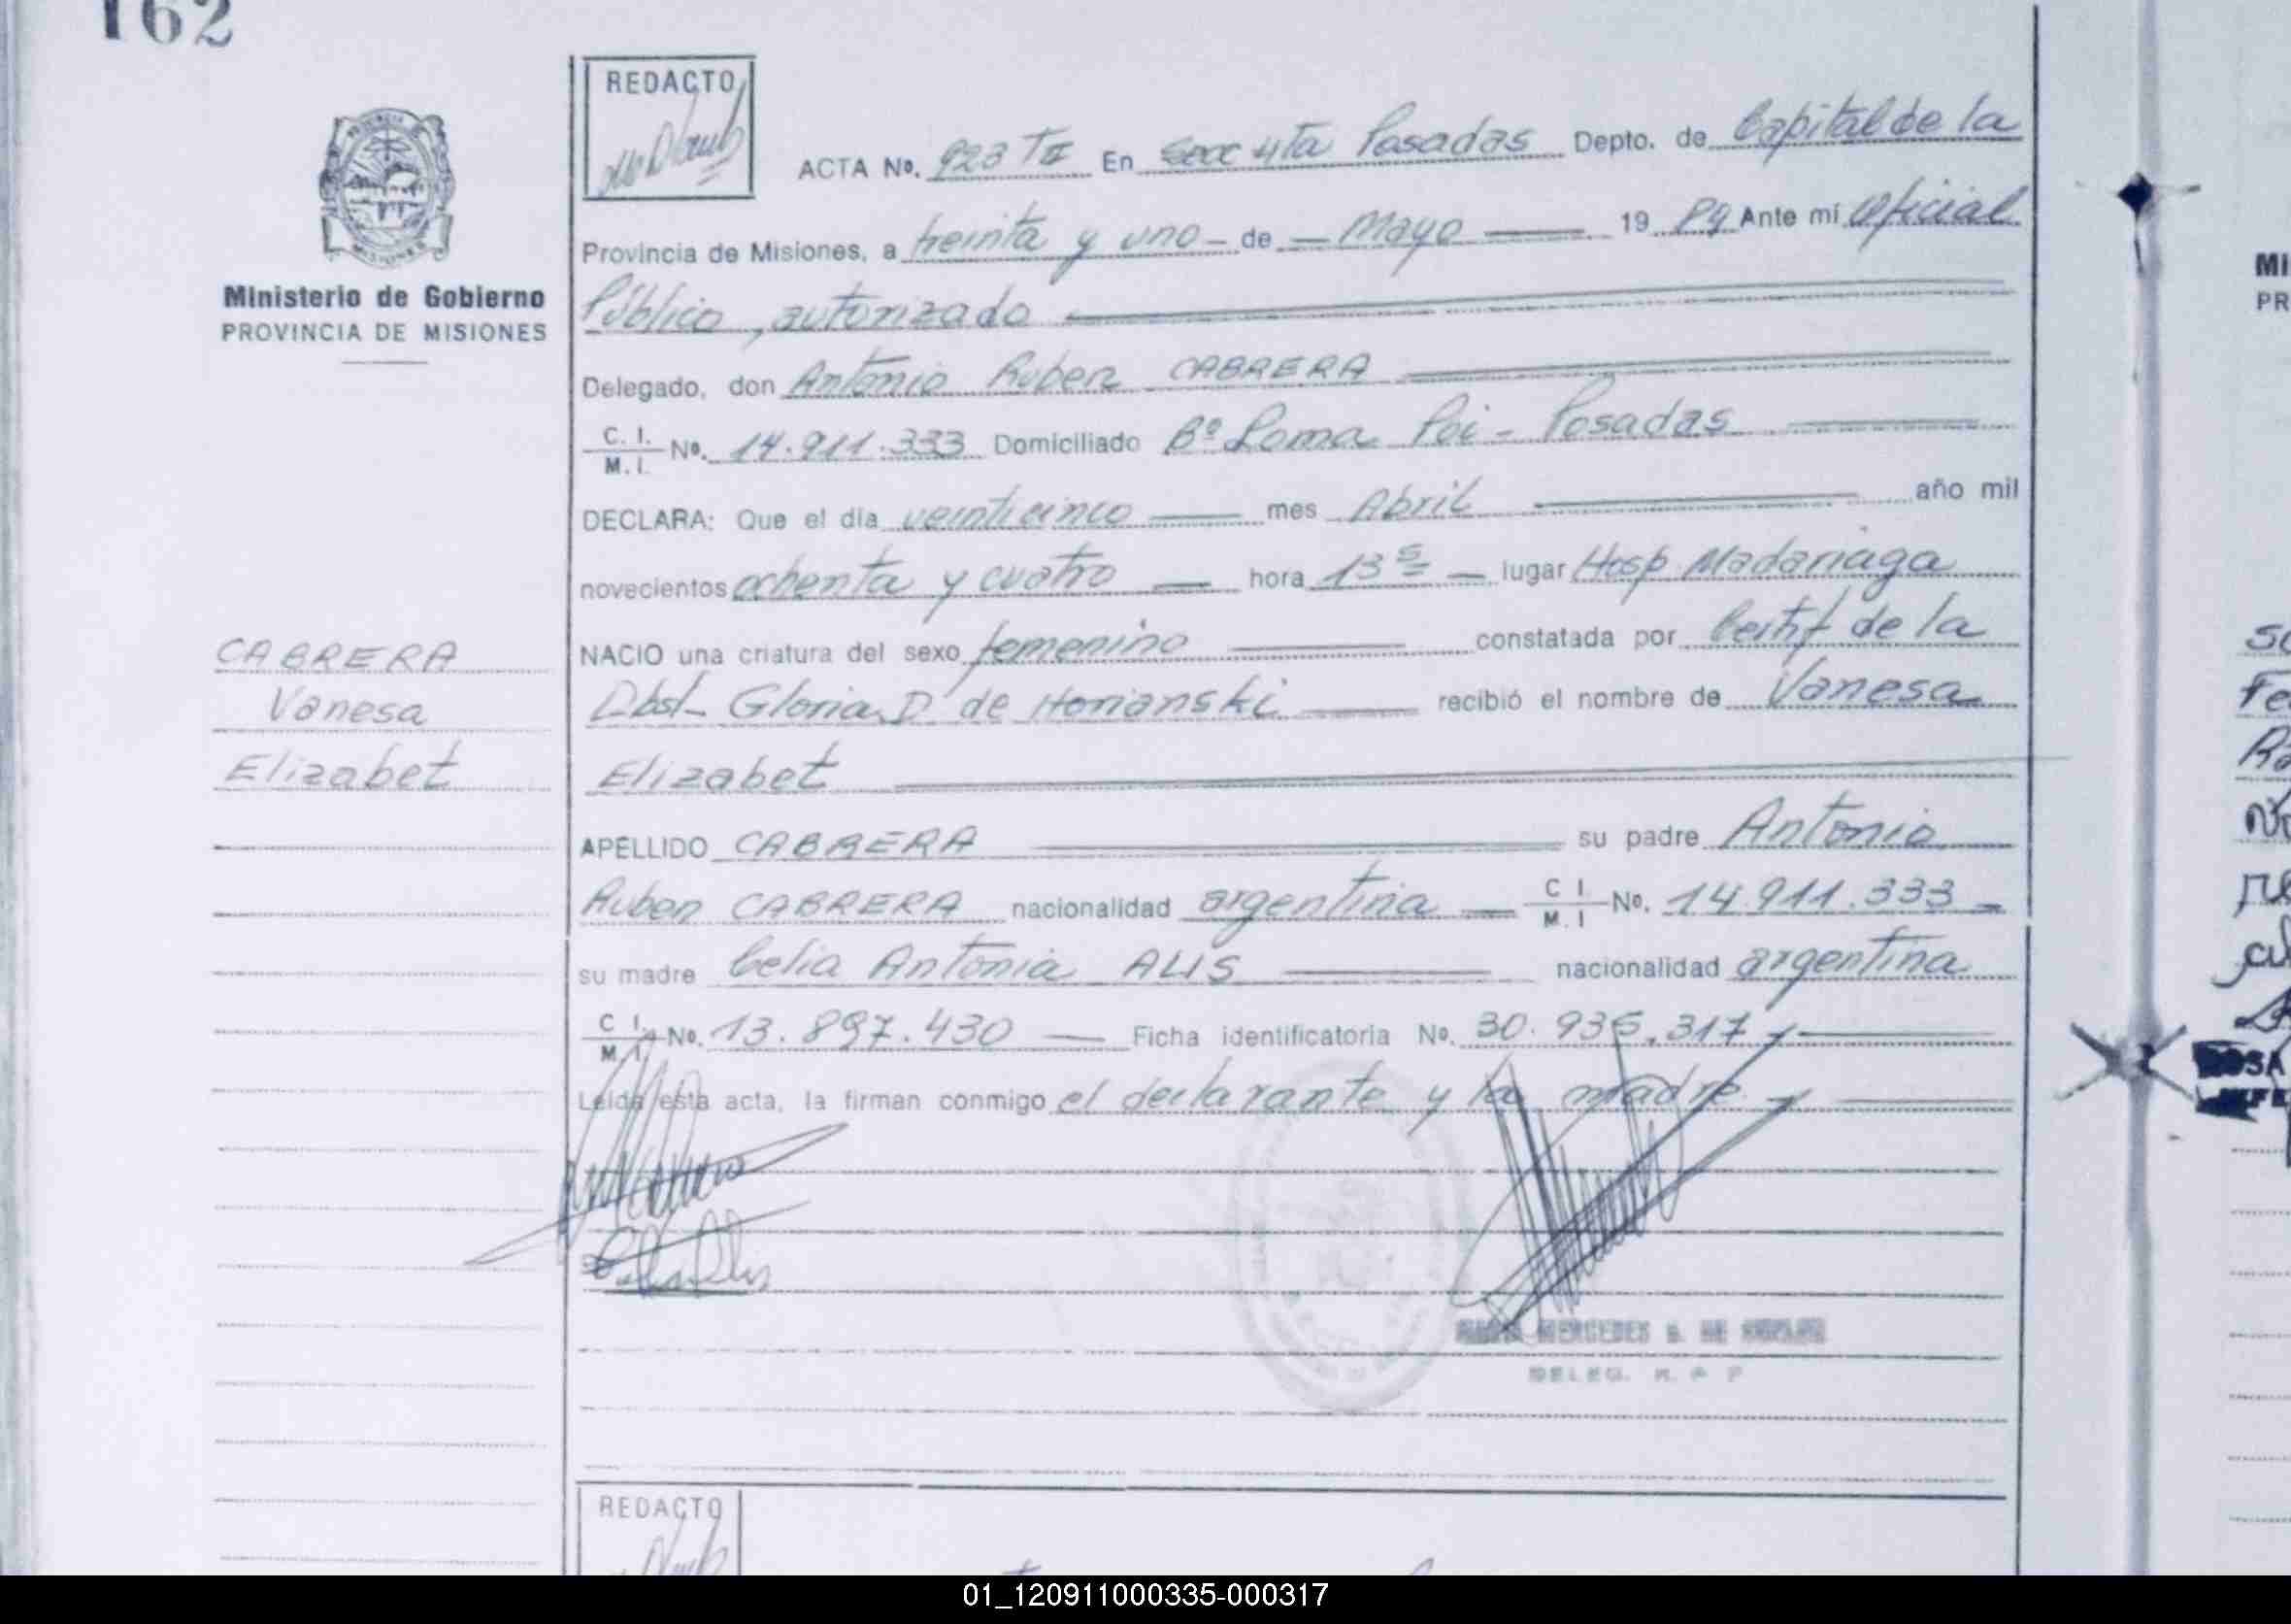 162
REDACTO
ACTA No. 923 TII En Secc 4ta Posadas Depto. de Capital de la
Provincia de Misiones, a treinta y uno - de - Mayo 19 84 Ante mí Oficial
Público, autorizado
Delegado, don Antonio Ruben CABRERA
C. I. M. I. No. 14.911.333 Domiciliado Bº Loma Poi - Posadas
DECLARA: Que el día veinticinco mes Abril año mil
novecientos ochenta y cuatro hora 13 5 lugar Hosp Madariaga
NACIO una criatura del sexo femenino constatada por Certif de la
Obst. Gloria D. de Horianski recibió el nombre de Vanesa
Elizabet
APELLIDO CABRERA su padre Antonio
Ruben CABRERA nacionalidad argentina C I M. I No. 14.911.333
su madre Celia Antonia ALIS nacionalidad argentina
C I M. I No. 13.897.430 Ficha identificatoria No. 30.935.317
Leída esta acta, la firman conmigo el declarante y la madre
MERCEDES
DELEG. R. P
REDACTO
PROVINCIA DE MISIONES
Ministerio de Gobierno
PROVINCIA DE MISIONES
CABRERA
Vanesa
Elizabet
MI
PR
01_120911000335-000317